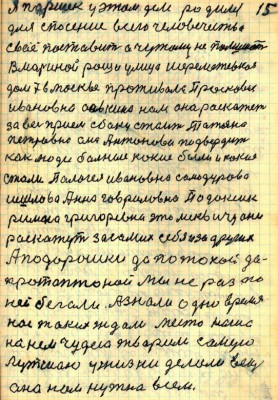 15
Я пришек у этом дели родили
для спосение всего человечитьва
свое поставить а чертому не
В мариной рощи улица шереметевская
дом 7 в москве противаля Прасковя
ивановна нам она раскажет
за вег прием с бану стаит Татяна
петровна она Антонова подвердит
как люди больние какие были и какия
стали Палогея ивановна самодурова
шишлова Анна Гавриловна
римма григоревна это москвичу они
раскажут за самих себя и за других
А по дорошки да по токой да-
кротаптоной мы не раз по
ней бегали. Азнали одно время
нас таких ждали место наша
на нем чудеса творим самую
лутшаю ужизни делаем веку
она нам нужна всем.